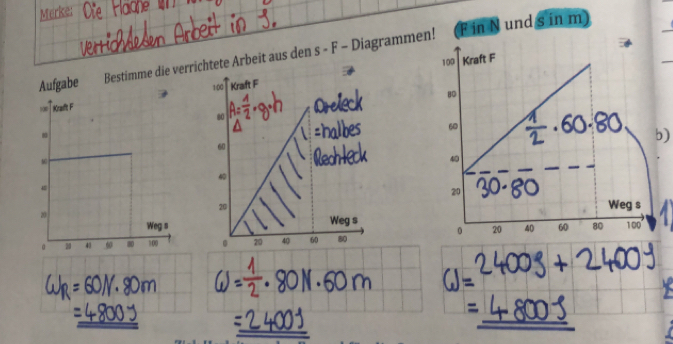 Merke: Die Fläche
verrichteten Arbeit in J.
Aufgabe Bestimme die verrichtete Arbeit aus den s - F – Diagrammen! (F in N und s in m)
100 Kraft F
80
60
40
20
0 20 40 60 80 100
Weg s
W_R = 60N·80m
= 4800J
100 Kraft F
80
60
40
20
0 20 40 60 80
Weg s
A = 1/2 · g · h
Δ
Dreieck
= halbes
Rechteck
W = 1/2 · 80N · 60m
= 2400J
100 Kraft F
80
60
40
20
0 20 40 60 80 100
Weg s
1/2 · 60 · 80
30 · 80
W = 2400J + 2400J
= 4800J
b)
1)